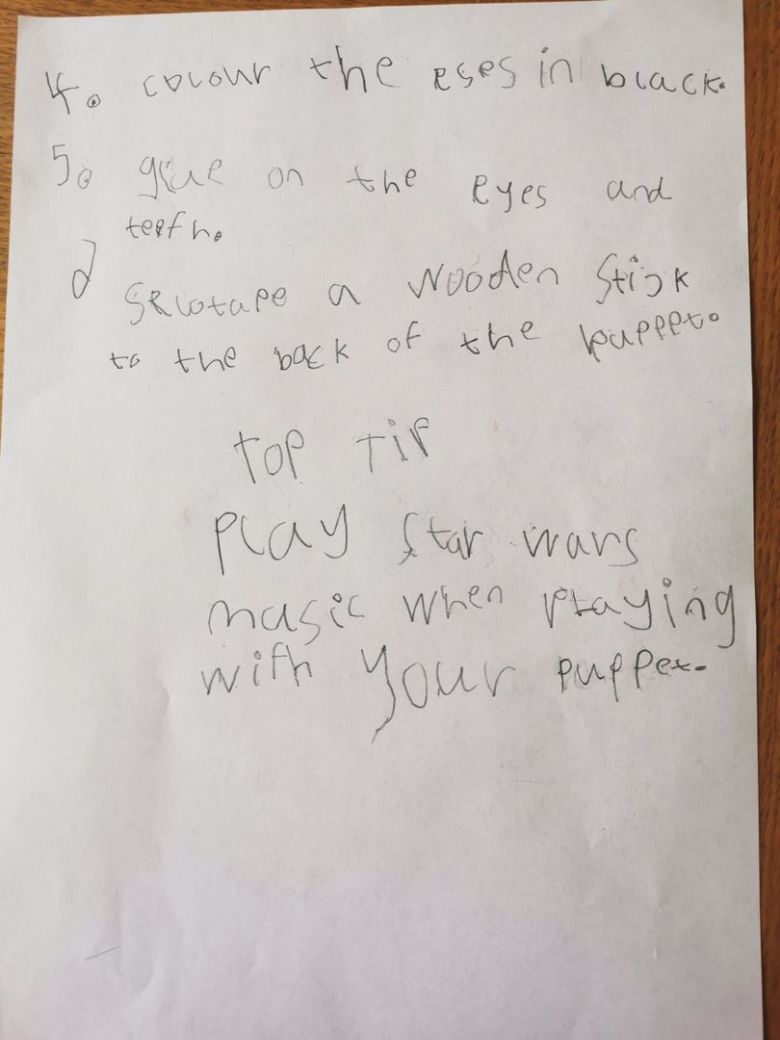 4. colour the eses in black.
5. glue on the eyes and
teeth.
6 Selotape a wooden stick
to the back of the puppet.
Top Tip
Play star wars
music when playing
with your puppet.